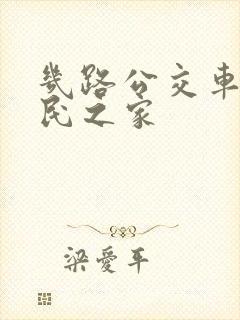 幾路公交車
民之家
梁愛平